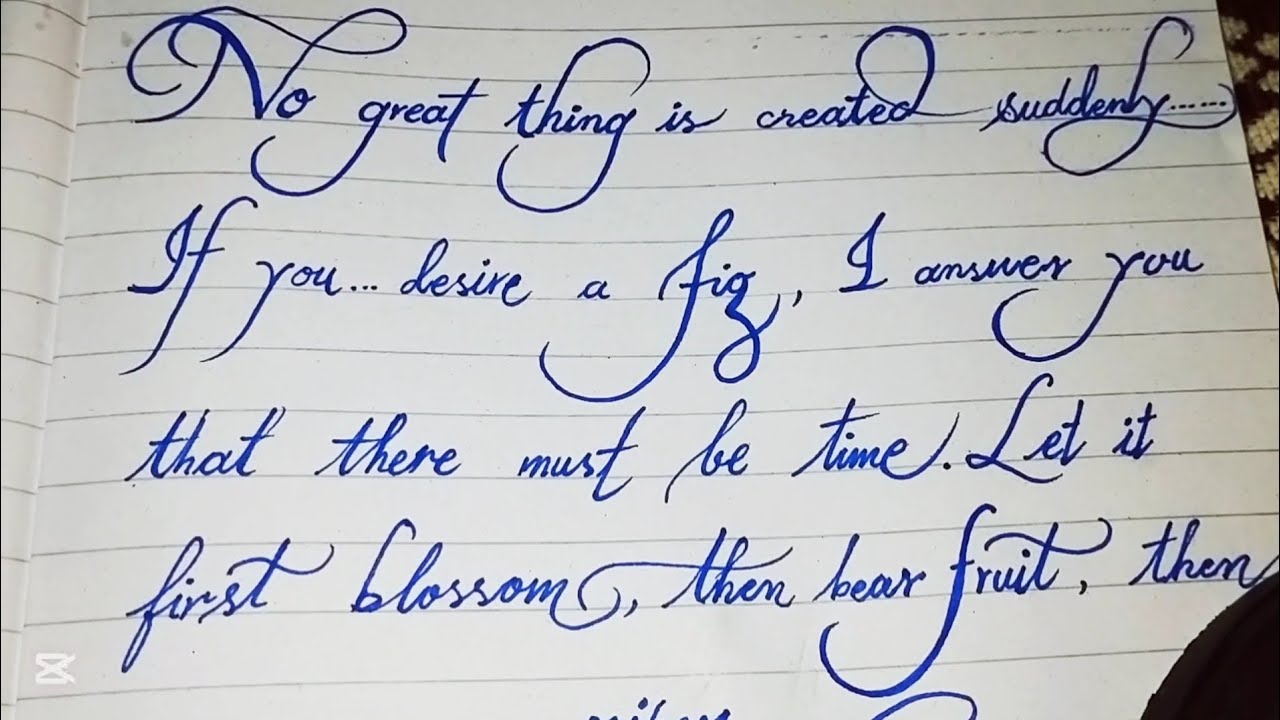 No great thing is created suddenly......
If you... desire a fig, I answer you
that there must be time. Let it
first blossom, then bear fruit, then